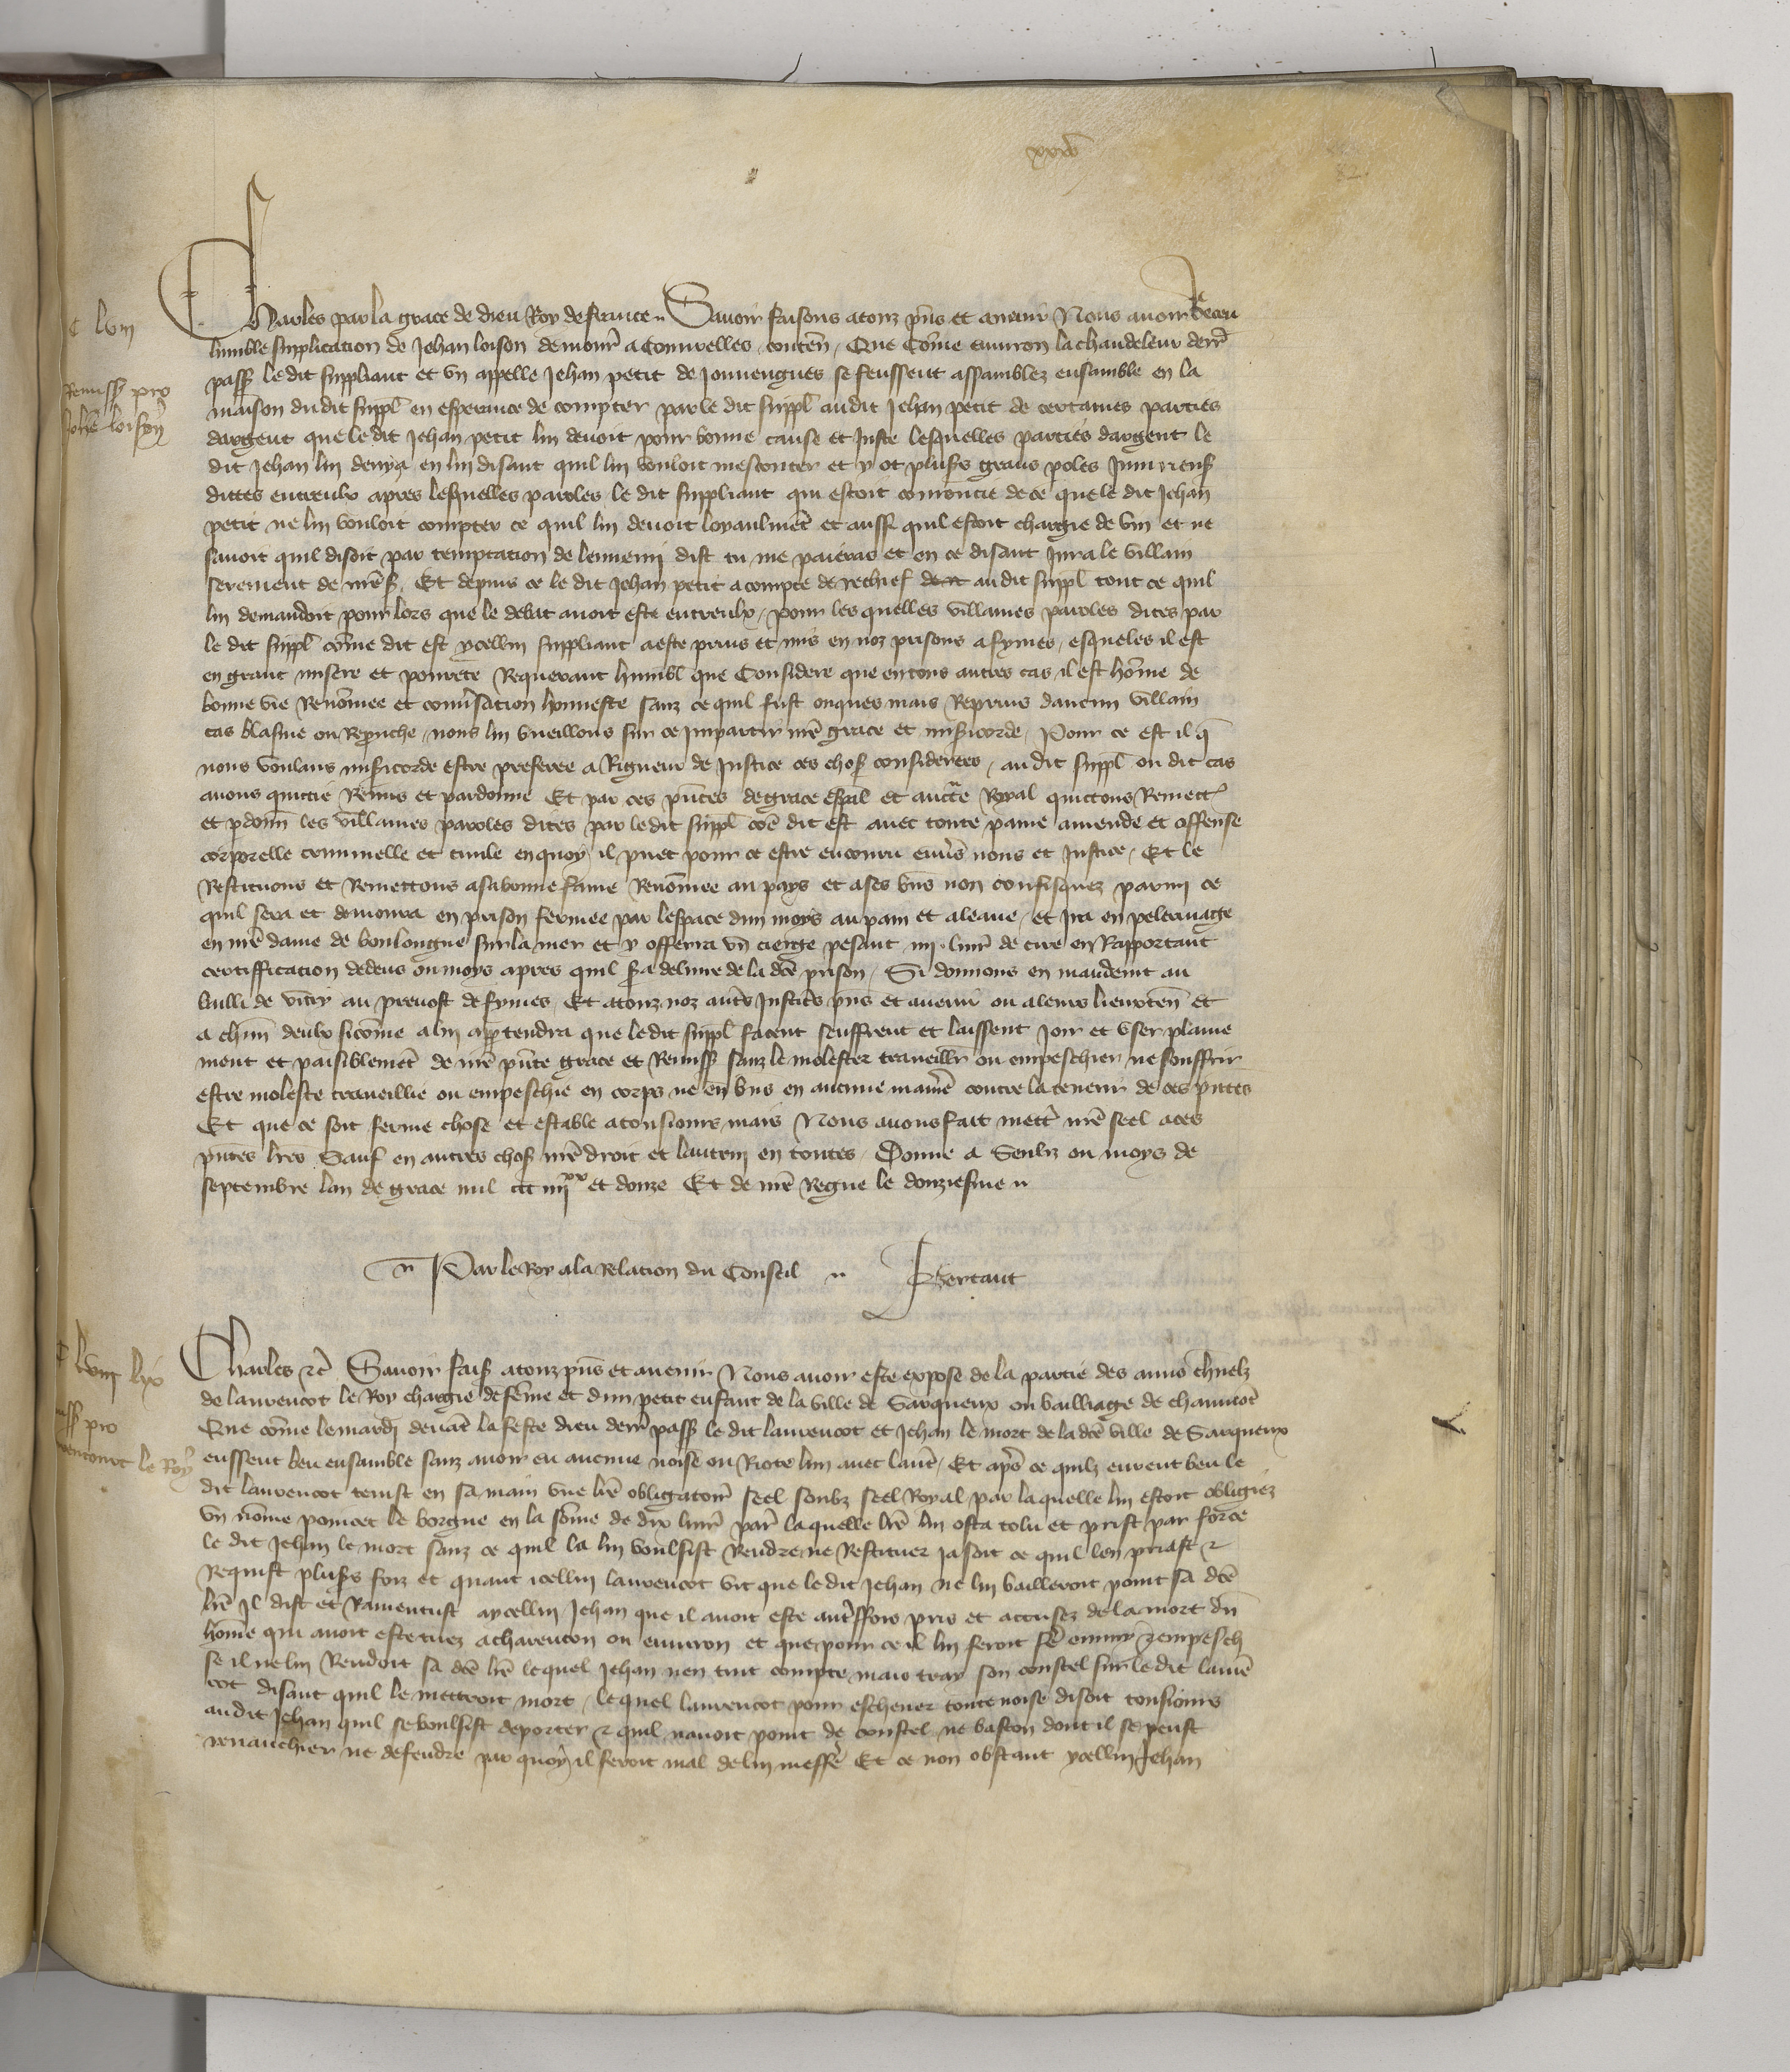 xxxv
C lviij
Remiss pro
Johe loison
Charles par la grace de dieu Roy de france Savoir faisons a touz pns et avenir Nous avoir Receu
lumble supplication de Jehan loison demour a Courcelles conten Que Come environ la chandeleur derr
pass le dit suppliant et un appelle Jehan petit de Jonnengues se feussent assamblez ensamble en la
maison du dit suppl en esperance de compter par le dit suppl au dit Jehan petit de certaines parties
dargent que le dit Jehan petit lui devoit pour bonne cause et Juste lesquelles parties dargent le
dit Jehan lui denya en lui disant quil lui vouloit mesconter et y ot plus graus poles Injurieus
dittes entreulx apres lesquelles paroles le dit suppliant qui estoit couroucie de ce que le dit Jehan
petit ne lui vouloit compter ce quil lui devoit loyaulmet et aussi quil estoit chargie de vin et ne
savoit quil disoit par temptation de lennemi dist tu me paieras et en ce disant Jura le villain
serement de nres Et depuis ce le dit Jehan petit a compte de rechief au dit suppl tout ce quil
lui demandoit pour lors que le debat avoit este entreulx pour les quelles villaines paroles dites par
le dit suppl come dit est ycellui suppliant a este prins et mis en noz prisons a fymes esqueles il est
en grant misere et povrete Requerant humbl que Considere que en tous autres cas il est home de
bonne vie Renomee et conversation honneste sanz ce quil fust onques mais Reprins daucun villain
cas blasme ou Reprouche nous lui vueillons sur ce Impartir nre grace et misericorde Pour ce est il q
nous voulans misericorde estre preferee a Rigueur de Justice ces chos considerees au dit suppl ou dit cas
avons quictie Remis et pardonne Et par ces pntes de grace espal et aucte Royal quictons Remett
et pdonn les villaines paroles dites par le dit suppl coe dit est avec toute paine amende et offense
corporelle criminelle et civile en quoy il puet pour ce estre encouru envs nous et Justice Et le
Restituons et Remettons a sa bonne fame Renomee au pays et a ses bns non confisquez parmi ce
quil sera et demoura en prison fermee par lespace dun moys au pain et a leaue et Ira en pelerinage
en nre dame de boulongne sur la mer et y offerra un cierge pesant iiij livr de cire en Rapportant
certiffication dedens un moys apres quil sa delivre de la dce prison Si donnons en mandemt au
bailli de vitry au prevost de fymes Et a touz noz autrs Justicrs pns et avenir ou a leurs lieuxten et
a chun deulx sicome a lui apptendra que le dit suppl facent seuffrent et laissent Joir et user plaine
ment et paisiblemet de nre pnte grace et Remiss sanz le molester travaillr ou empeschier ne souffrir
estre moleste travaillie ou empeschie en corps ne en bns en aucune manie contre la teneur de ces pntes
Et que ce soit ferme chose et estable a tousiours mais Nous avons fait mettr nre seel a ces
pntes lres Sauf en autres chos nre droit et lautrui en toutes Donne a Senliz ou moys de
septembre lan de grace mil ccc iiijxx et douze Et de nre Regne le douziesme
Par le Roy a la Relation du Conseil Bertaut
C lviij lix
iss pro
rencourt le Roy
Charles etc Savoir fais a touz pns et avenir Nous avoir este expose de la partie des amis charnelz
de laurencot le Roy chargie de feme et dun petit enfant de la ville de Sarqueux ou bailliage de chaumot
Que come le mardi devat la feste dieu derr pass le dit laurencot et Jehan le mort de la dce ville de Sarqueux
eussent beu ensamble sanz avoir eu aucune noise ou Riote lun avec laut Et aps ce quilz eurent beu le
dit laurencot tenist en sa main une lre obligatoir seel soubz seel Royal par laquelle lui estoit obligiez
un nome poincet le borgne en la some de dix livr par laquelle lre lui osta tolu et prist par force
le dit Jehan le mort sanz ce quil la lui voulsist Rendre ne Restituer ja soit ce quil len priast et
Requist plus foiz et quant icellui laurencot vit que le dit Jehan ne lui bailleroit point sa dce
lre Il dist et Ramentust a ycellui Jehan que il avoit este autffois pris et accusez de la mort du
home qui avoit este tuez a charencon ou environ et que pour ce il lui feroit se ennuy et empesch
se il ne lui Rendoit sa dce lre lequel Jehan nen tint compte mais tray son coustel sur le dit lauren
cot disant quil le mettroit mort lequel laurencot pour eschever toute noise disoit tousiours
au dit Jehan quil se voulsist deporter et quil navoit point de coustel ne baston dont il se peust
revanchier ne defendre par quoy il feroit mal de lui meffe Et ce non obstant ycellui Jehan